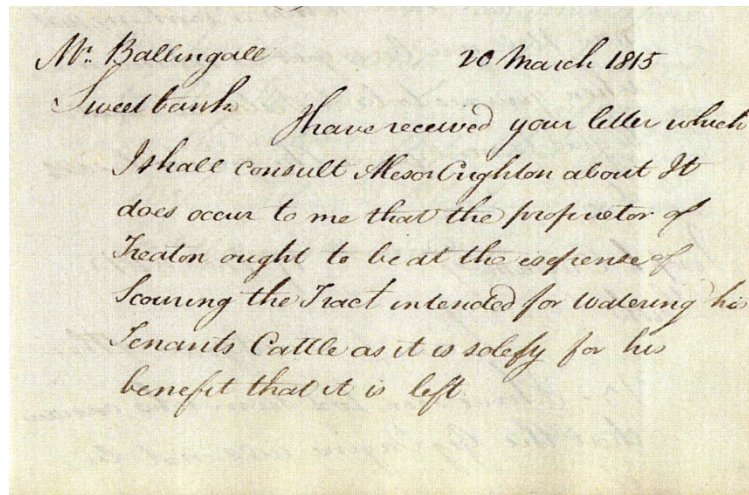 Mr. Ballingall 20 March 1815
Sweetbank
I have received your letter which
I shall consult Mesor Crighton about It
does occur to me that the proprietor of
Treaton ought to be at the expense of
Scouring the Tract intended for watering his
Tenants Cattle as it is solely for his
benefit that it is left